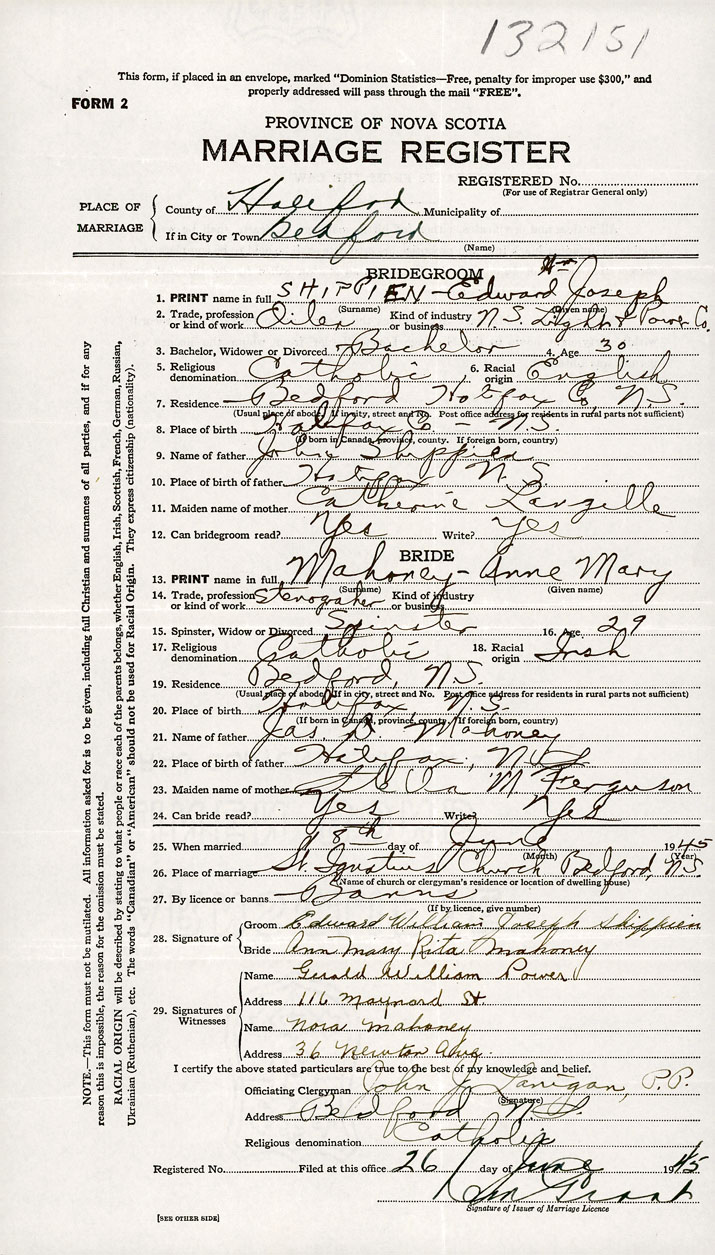 132151
This form, if placed in an envelope, marked "Dominion Statistics—Free, penalty for improper use $300," and
properly addressed will pass through the mail "FREE".
FORM 2
PROVINCE OF NOVA SCOTIA
MARRIAGE REGISTER
REGISTERED No.
(For use of Registrar General only)
PLACE OF MARRIAGE
County of Halifax Municipality of
If in City or Town Bedford
(Name)
BRIDEGROOM
Wm
1. PRINT name in full SHIPPIEN - Edward Joseph
(Surname) (Given name)
2. Trade, profession or kind of work Oiler Kind of industry or business N.S. Light & Power Co.
3. Bachelor, Widower or Divorced Bachelor 4. Age 30
5. Religious denomination Catholic 6. Racial origin English
7. Residence Bedford Halifax Co, N.S.
(Usual place of abode. If in city, street and No. Post office address for residents in rural parts not sufficient)
8. Place of birth Halifax Co - N.S.
(If born in Canada, province, county. If foreign born, country)
9. Name of father John Shippien
10. Place of birth of father Halifax N.S.
11. Maiden name of mother Catherine Langille
12. Can bridegroom read? Yes Write? Yes
BRIDE
13. PRINT name in full Mahoney - Anne Mary
(Surname) (Given name)
14. Trade, profession or kind of work Stenograher Kind of industry or business
15. Spinster, Widow or Divorced Spinster 16. Age 29
17. Religious denomination Catholic 18. Racial origin Irish
19. Residence Bedford, N.S.
(Usual place of abode. If in city, street and No. Post office address for residents in rural parts not sufficient)
20. Place of birth Halifax, N.S.
(If born in Canada, province, county. If foreign born, country)
21. Name of father Jas. D. Mahoney
22. Place of birth of father Halifax, N.S.
23. Maiden name of mother Stella M Ferguson
24. Can bride read? Yes Write? Yes
25. When married 18th day of June 1945
(Month) (Year)
26. Place of marriage St. Ignatius Church Bedford, N.S.
(Name of church or clergyman's residence or location of dwelling house)
27. By licence or banns Banns
(If by licence, give number)
28. Signature of
Groom Edward William Joseph Shippien
Bride Ann Mary Rita Mahoney
29. Signatures of Witnesses
Name Gerald William Power
Address 116 Maynard St
Name Nora Mahoney
Address 36 Newton Ave.
I certify the above stated particulars are true to the best of my knowledge and belief.
Officiating Clergyman John J. Lanigan, P.P.
(Signature)
Address Bedford N.S.
Religious denomination Catholic
Registered No. Filed at this office 26 day of June 1945
Grant
Signature of Issuer of Marriage Licence
[SEE OTHER SIDE]
NOTE.—This form must not be mutilated. All information asked for is to be given, including full Christian and surnames of all parties, and if for any
reason this is impossible, the reason for the omission must be stated.
RACIAL ORIGIN will be described by stating to what people or race each of the parents belongs, whether English, Irish, Scottish, French, German, Russian,
Ukrainian (Ruthenian), etc. The words "Canadian" or "American" should not be used for Racial Origin. They express citizenship (nationality).